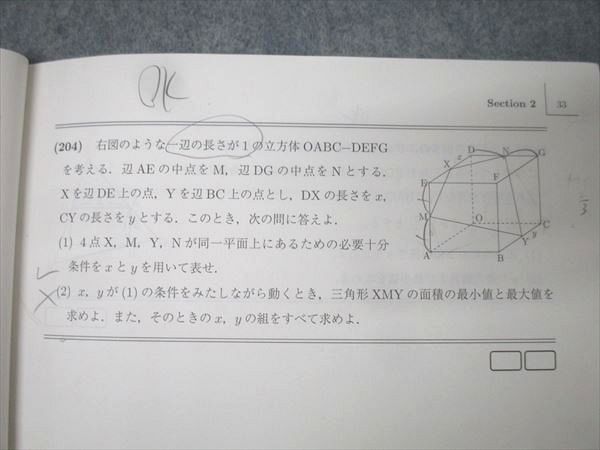 OK
Section 2 33
(204) 右図のような一辺の長さが1の立方体 OABC−DEFG
を考える．辺 AE の中点を M，辺 DG の中点を N とする．
X を辺 DE 上の点，Y を辺 BC 上の点とし，DX の長さを x，
CY の長さを y とする．このとき，次の問に答えよ．
(1) 4点 X，M，Y，N が同一平面上にあるための必要十分
条件を x と y を用いて表せ．
(2) x，y が (1) の条件をみたしながら動くとき，三角形 XMY の面積の最小値と最大値を
求めよ．また，そのときの x，y の組をすべて求めよ．
D N G
X x
E F
M
O C
Y y
A B